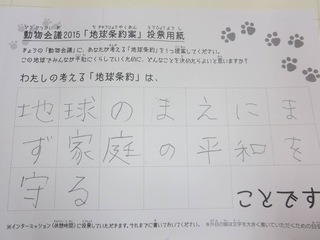 動物会議2015「地球条約案」投票用紙
きょうの「動物会議」に、あなたが考える「地球条約」を1つ提案してください。
この地球でみんなが平和にくらしていくために、どんなことを決めたらよいと思いますか?
わたしの考える「地球条約」は、
地球のまえにま
ず家庭の平和を
守る
※インターミッション(休憩時間)に投票していただきます。それまでに書いておいてください。